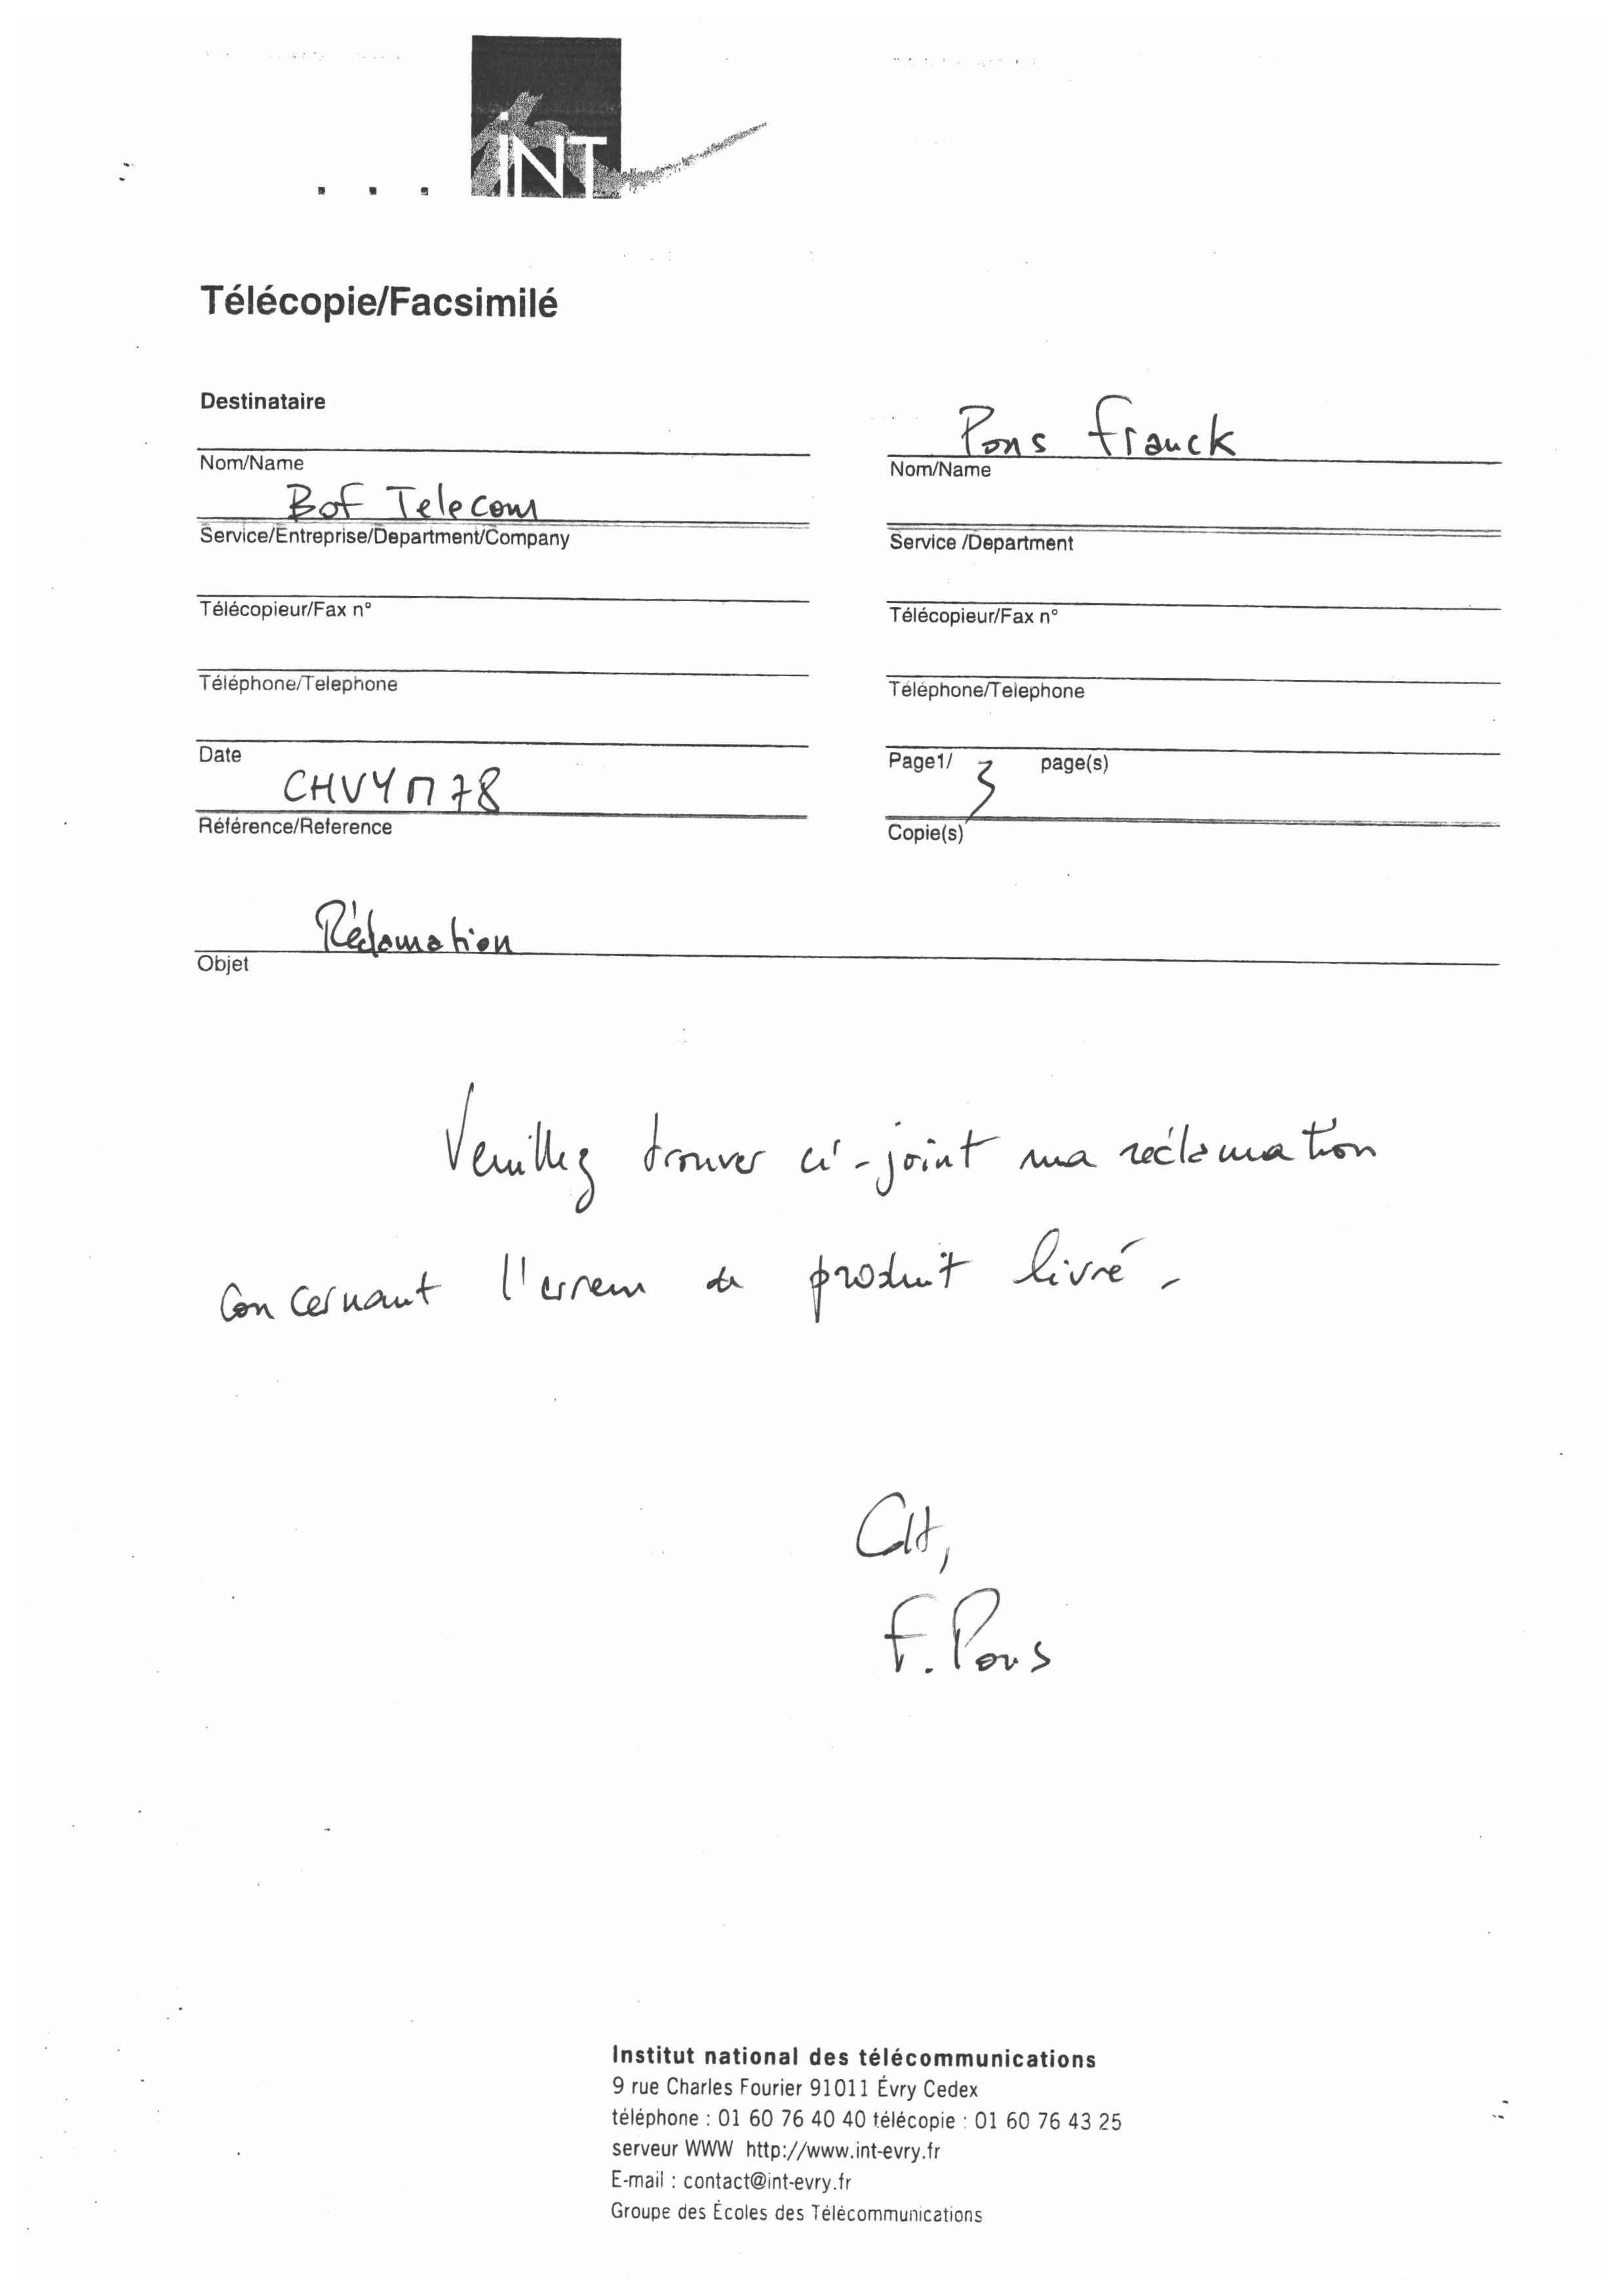 iNT
Télécopie/Facsimilé
Destinataire
Nom/Name
Bof Telecom
Service/Entreprise/Department/Company
Télécopieur/Fax n°
Téléphone/Telephone
Date
CHVYM78
Référence/Reference
Pons Franck
Nom/Name
Service /Department
Télécopieur/Fax n°
Téléphone/Telephone
Page1/ 3 page(s)
Copie(s)
Réclamation
Objet
Veuillez trouver ci-joint ma réclamation
concernant l'erreur de produit livré.
Clt,
F. Pons
Institut national des télécommunications
9 rue Charles Fourier 91011 Évry Cedex
téléphone : 01 60 76 40 40 télécopie : 01 60 76 43 25
serveur WWW http://www.int-evry.fr
E-mail : contact@int-evry.fr
Groupe des Écoles des Télécommunications